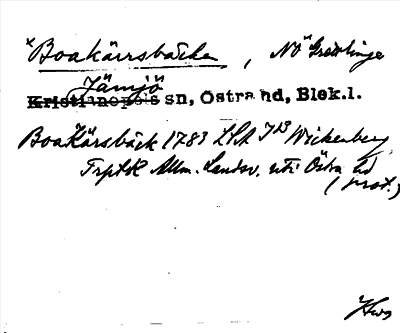 *Boakärrsbäcken, NÖ Grisslinge
Jämjö
Kristianopels sn, Östra hd, Blek.l.
Boakärsbäck 1783 LSA J13 Wickenberg,
Trptsk Allm. Landsv. uti Östra hd
(prot.)